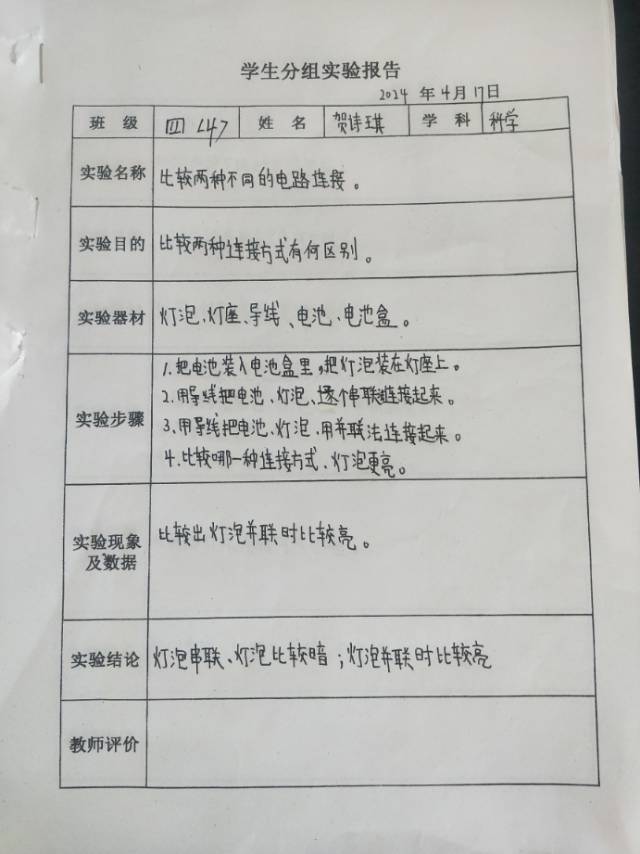 学生分组实验报告
2024 年 4 月 17日
班 级 四 (4) 姓 名 贺诗琪 学 科 科学
实验名称 比较两种不同的电路连接。
实验目的 比较两种连接方式有何区别。
实验器材 灯泡、灯座、导线、电池、电池盒。
实验步骤
1.把电池装入电池盒里,把灯泡装在灯座上。
2.用导线把电池、灯泡、逐个串联链接起来。
3、用导线把电池、灯泡、用并联法连接起来。
4.比较哪一种连接方式、灯泡更亮。
实验现象
及数据
比较出灯泡并联时比较亮。
实验结论 灯泡串联、灯泡比较暗;灯泡并联时比较亮
教师评价